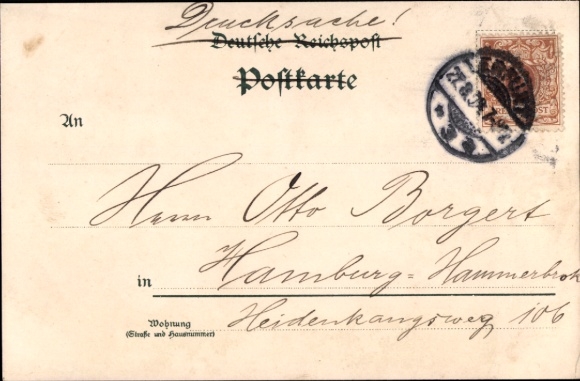 Drucksache!
Deutsche Reichspost
Postkarte
An
Herrn Otto Borgert
in Hamburg=Hammerbrok
Wohnung
(Straße und Hausnummer)
Heidenkangsweg 106